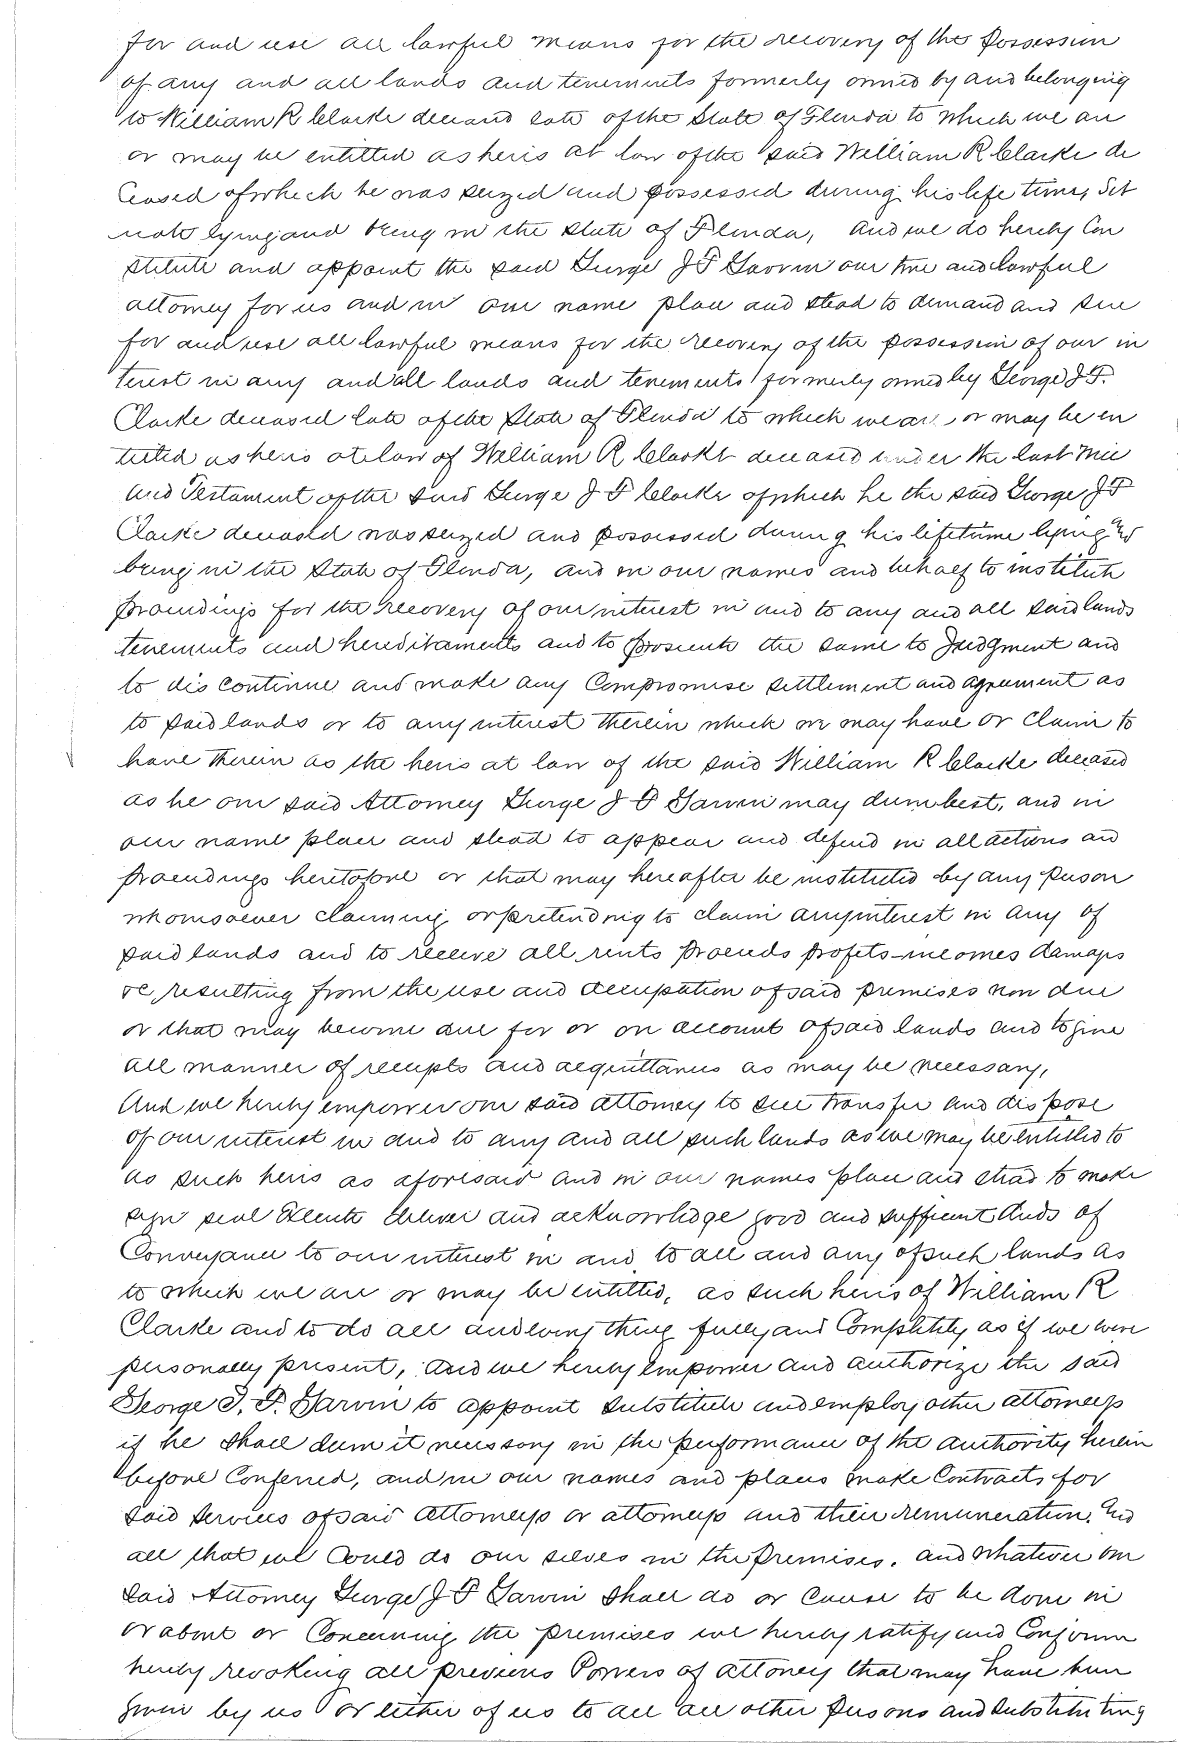 for and use all lawful means for the recovery of the possession
of any and all lands and tenements formerly owned by and belonging
to William R Clarke deceased late of the State of Florida to which we are
or may be entitled as heirs at law of the said William R Clarke de
ceased of which he was seized and possessed during his life time, Sit
uate lying and being in the State of Florida, and we do hereby Con
stitute and appoint the said George J F Garvin our true and lawful
attorney for us and in our name place and stead to demand and sue
for and use all lawful means for the recovery of the possession of our in
terest in any and all lands and tenements formerly owned by George J. F.
Clarke deceased late of the State of Florida to which we are or may be en
titled as heirs at law of William R Clarke deceased under the last Will
and Testament of the said George J F Clarke of which he the said George J F
Clarke deceased was seized and possessed during his lifetime lying and
being in the State of Florida, and in our names and behalf to institute
proceedings for the recovery of our interest in and to any and all said lands
tenements and hereditaments and to prosecute the same to Judgment and
to discontinue and make any Compromise settlement and agreement as
to said lands or to any interest therein which we may have or Claim to
have therein as the heirs at law of the said William R Clarke deceased
as he our said Attorney George J F Garvin may deem best, and in
our name place and stead to appear and defend in all actions and
proceedings heretofore or that may hereafter be instituted by any person
whomsoever claiming or pretending to claim any interest in any of
said lands and to receive all rents proceeds profits incomes damages
&c, resulting from the use and occupation of said premises now due
or that may become due for or on account of said lands and to give
all manner of receipts and acquittances as may be necessary,
And we hereby empower our said attorney to sell transfer and dispose
of our interest in and to any and all such lands as we may be entitled to
as such heirs as aforesaid and in our names place and stead to make
sign seal Execute deliver and acknowledge good and sufficient deeds of
Conveyance to our interest in and to all and any of such lands as
to which we are or may be entitled, as such heirs of William R
Clarke and to do all and every thing fully and Completely as if we were
personally present, and we hereby empower and authorize the said
George J. F. Garvin to appoint substitute and employ other attorneys
if he shall deem it necessary in the performance of the authority herein
before Conferred, and in our names and places make Contracts for
said services of said attorneys or attorneys and their remuneration. And
all that we Could do our selves in the premises. and whatever our
said Attorney George J F Garvin shall do or cause to be done in
or about or Concerning the premises we hereby ratify and Confirm
hereby revoking all previous Powers of attorney that may have been
given by us or either of us to all all other persons and substituting